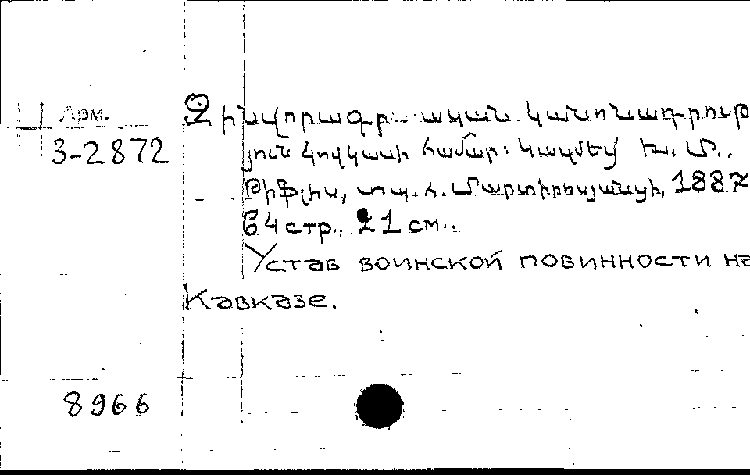 Арм.
3-2872
Զինվորագրական կանոնադրութ
յուն Կովկասի համար: Կազմեց Խ. Մ.,
Թիֆլիս, տպ. Հ. Մարտիրոսյանցի, 1887
64 стр., 21 см..
Устав воинской повинности на
Кавказе.
8966